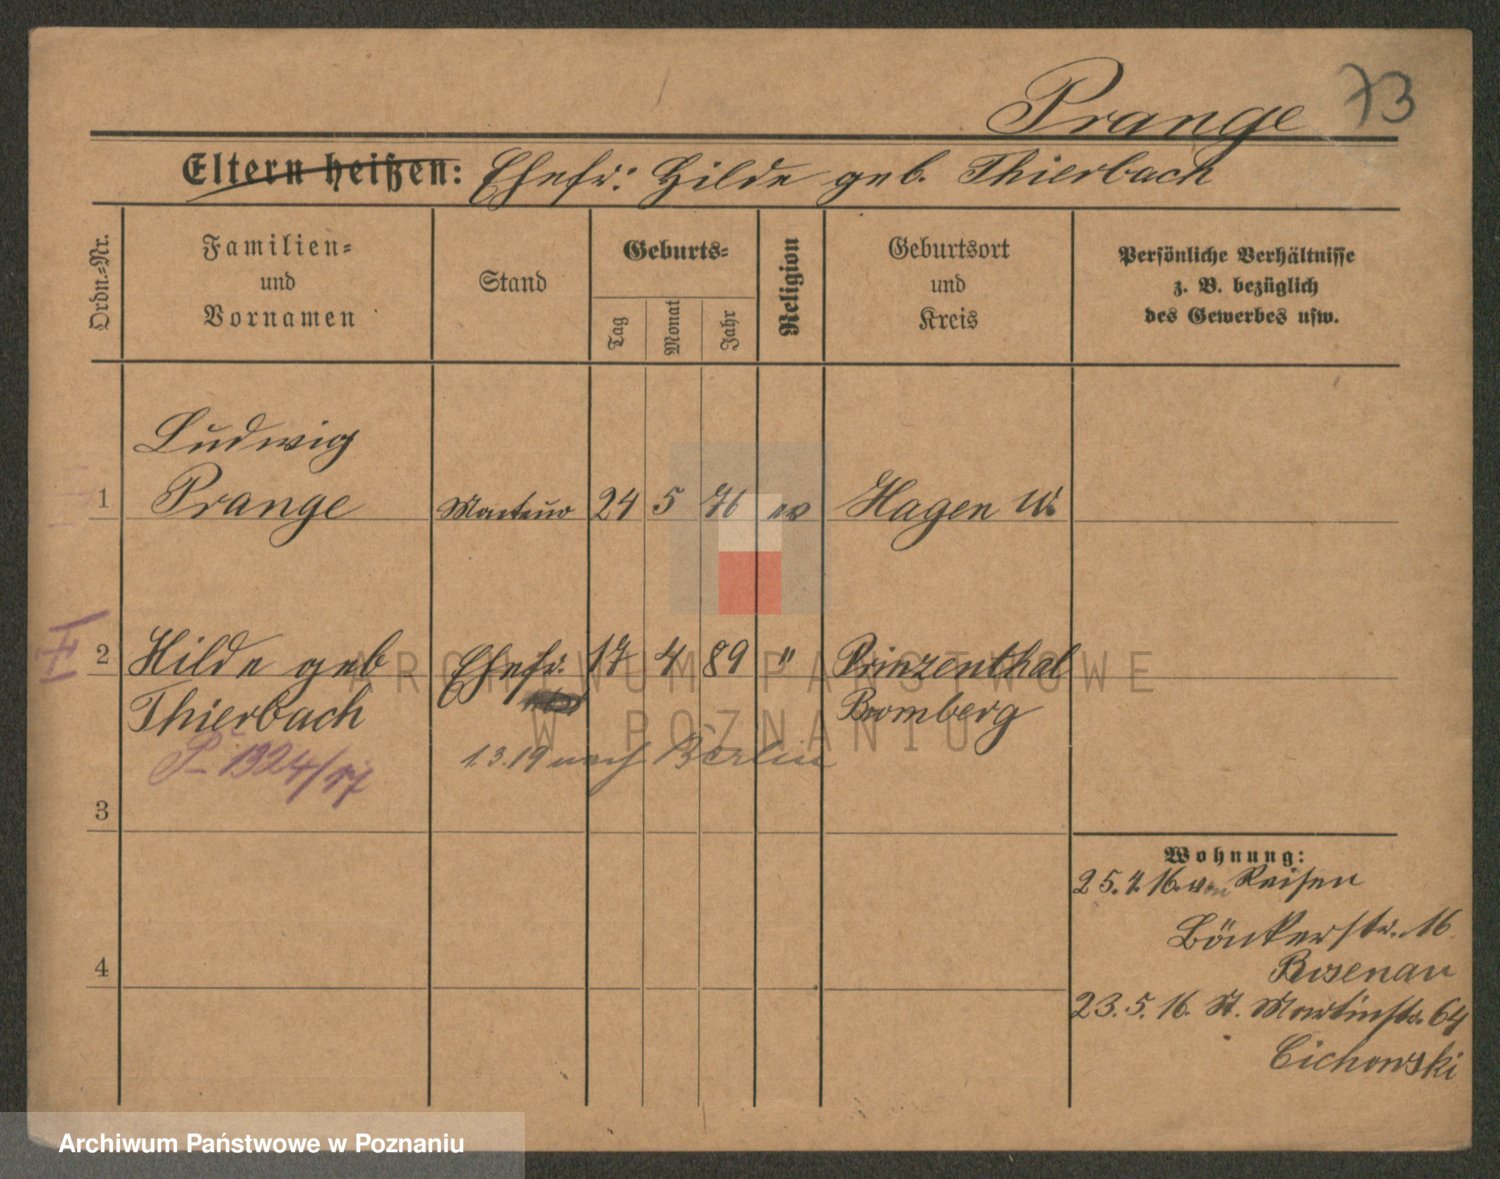 Prange 73
Eltern heißen: Ehefr: Hilde geb. Thierbach
Ordn.-Nr.
Familien-
und
Vornamen
Stand
Geburts-
Tag
Monat
Jahr
Religion
Geburtsort
und
Kreis
Persönliche Verhältnisse
z. B. bezüglich
des Gewerbes usw.
Ludwig
1 Prange 24 5 76 ev Hagen W.
2 Hilde geb Ehefr. 17 4 89 " Prinzenthal
Thierbach Bromberg
P 1324/17
1.3.19 nach Berlin
3
Wohnung:
25.4.16. von Reisen
Bönkerstr. 16
4
Rosenau
23.5.16. St. Martinstr. 64
Cichowski
ARCHIWUM PAŃSTWOWE
W POZNANIU
Archiwum Państwowe w Poznaniu